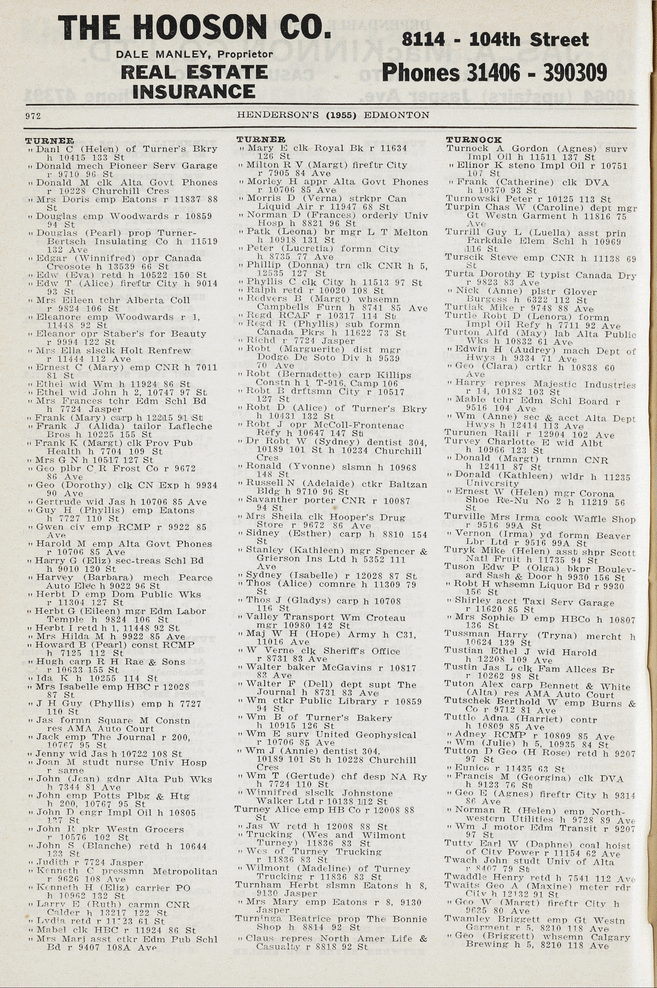 THE HOOSON CO.
DALE MANLEY, Proprietor
REAL ESTATE
INSURANCE
8114 - 104th Street
Phones 31406 - 390309
972 HENDERSON'S (1955) EDMONTON
TURNER
" Danl C (Helen) of Turner's Bkry
h 10415 133 St
" Donald mech Pioneer Serv Garage
r 9710 96 St
" Donald M clk Alta Govt Phones
r 10228 Churchill Cres
" Mrs Doris emp Eatons r 11837 88
St
" Douglas emp Woodwards r 10859
94 St
" Douglas (Pearl) prop Turner-
Bertsch Insulating Co h 11519
132 Ave
" Edgar (Winnifred) opr Canada
Creosote h 13539 66 St
" Edw (Eva) retd h 10522 150 St
" Edw T (Alice) fireftr City h 9014
93 St
" Mrs Eileen tchr Alberta Coll
r 9824 106 St
" Eleanore emp Woodwards r 1,
11448 92 St
" Eleanor opr Staber's for Beauty
r 9994 122 St
" Mrs Ella slsclk Holt Renfrew
r 11444 112 Ave
" Ernest C (Mary) emp CNR h 7011
81 St
" Ethel wid Wm h 11924 86 St
" Ethel wid John h 2, 10747 97 St
" Mrs Frances tchr Edm Schl Bd
h 7724 Jasper
" Frank (Mary) carp h 12215 91 St
" Frank J (Alida) tailor Lafleche
Bros h 10225 155 St
" Frank K (Margt) clk Prov Pub
Health h 7704 109 St
" Mrs G N h 10517 127 St
" Geo plbr C R Frost Co r 9672
86 Ave
" Geo (Dorothy) clk CN Exp h 9934
90 Ave
" Gertrude wid Jas h 10706 85 Ave
" Guy H (Phyllis) emp Eatons
h 7727 110 St
" Gwen civ emp RCMP r 9922 85
Ave
" Harold M emp Alta Govt Phones
r 10706 85 Ave
" Harry G (Eliz) sec-treas Schl Bd
h 9010 120 St
" Harvey (Barbara) mech Pearce
Auto Elec h 9022 96 St
" Herbt D emp Dom Public Wks
r 11304 127 St
" Herbt G (Eileen) mgr Edm Labor
Temple h 9824 106 St
" Herbt I retd h 1, 11448 92 St
" Mrs Hilda M h 9922 85 Ave
" Howard B (Pearl) const RCMP
h 7125 112 St
" Hugh carp R H Rae & Sons
r 10633 155 St
" Ida K h 10255 114 St
" Mrs Isabelle emp HBC r 12028
87 St
" J H Guy (Phyllis) emp h 7727
110 St
" Jas formn Square M Constn
res AMA Auto Court
" Jack emp The Journal r 200,
10767 95 St
" Jenny wid Jas h 10722 108 St
" Joan M studt nurse Univ Hosp
r same
" John (Jean) gdnr Alta Pub Wks
h 7344 81 Ave
" John emp Potts Plbg & Htg
h 200, 10767 95 St
" John D engr Impl Oil h 10805
127 St
" John R pkr Westn Grocers
r 10576 102 St
" John S (Blanche) retd h 10644
123 St
" Judith r 7724 Jasper
" Kenneth C pressmn Metropolitan
r 9626 108 Ave
" Kenneth H (Eliz) carrier PO
h 10962 132 St
" Larry E (Ruth) carmn CNR
Calder h 13217 122 St
" Lydia retd r 11123 61 St
" Mabel clk HBC r 11924 86 St
" Mrs Marj asst ctkr Edm Pub Schl
Bd r 9407 108A Ave
TURNER
" Mary E clk Royal Bk r 11634
126 St
" Milton R V (Margt) fireftr City
r 7905 84 Ave
" Morley H appr Alta Govt Phones
r 10706 85 Ave
" Morris D (Verna) strkpr Can
Liquid Air r 11947 68 St
" Norman D (Frances) orderly Univ
Hosp h 8821 96 St
" Patk (Leona) br mgr L T Melton
h 10918 131 St
" Peter (Lucretia) formn City
h 8735 77 Ave
" Phillip (Donna) trn clk CNR h 5,
12535 127 St
" Phyllis C clk City h 11513 97 St
" Ralph retd r 10020 108 St
" Redvers B (Margt) whsemn
Campbells Furn h 8741 85 Ave
" Regd RCAF r 10317 114 St
" Regd R (Phyllis) sub formn
Canada Pkrs h 11622 73 St
" Richd r 7724 Jasper
" Robt (Marguerite) dist mgr
Dodge De Soto Div h 9539
70 Ave
" Robt (Bernadette) carp Killips
Constn h 1 T-916, Camp 106
" Robt B drftsmn City r 10517
127 St
" Robt D (Alice) of Turner's Bkry
h 10431 132 St
" Robt J opr McColl-Frontenac
Refy h 10647 147 St
" Dr Robt W (Sydney) dentist 304,
10189 101 St h 10234 Churchill
Cres
" Ronald (Yvonne) slsmn h 10968
148 St
" Russell N (Adelaide) ctkr Baltzan
Bldg h 9710 96 St
" Savanther porter CNR r 10087
94 St
" Mrs Sheila clk Hooper's Drug
Store r 9672 86 Ave
" Sidney (Esther) carp h 8810 154
St
" Stanley (Kathleen) mgr Spencer &
Grierson Ins Ltd h 5352 111
Ave
" Sydney (Isabelle) r 12028 87 St
" Thos (Alice) comnre h 11309 79
St
" Thos J (Gladys) carp h 10708
116 St
" Valley Transport Wm Croteau
mgr 10980 142 St
" Maj W H (Hope) Army h C31,
11016 Ave
" W Verne clk Sheriff's Office
r 8731 83 Ave
" Walter baker McGavins r 10817
83 Ave
" Walter F (Dell) dept supt The
Journal h 8731 83 Ave
" Wm ctkr Public Library r 10859
94 St
" Wm B of Turner's Bakery
h 10915 126 St
" Wm E surv United Geophysical
r 10706 85 Ave
" Wm J (Annie) dentist 304,
10189 101 St h 10228 Churchill
Cres
" Wm T (Gertude) chf desp NA Ry
h 7724 110 St
" Winnifred slsclk Johnstone
Walker Ltd r 10138 112 St
Turney Alice emp HB Co r 12008 88
St
" Jas W retd h 12008 88 St
" Trucking (Wes and Wilmont
Turney) 11836 83 St
" Wes of Turney Trucking
r 11836 83 St
" Wilmont (Madeline) of Turney
Trucking r 11836 83 St
Turnham Herbt slsmn Eatons h 8,
9130 Jasper
" Mrs Mary emp Eatons r 8, 9130
Jasper
Turninga Beatrice prop The Bonnie
Shop h 8814 92 St
" Claus repres North Amer Life &
Casualty r 8818 92 St
TURNOCK
Turnock A Gordon (Agnes) surv
Impl Oil h 11511 137 St
" Elinor K steno Impl Oil r 10751
107 St
" Frank (Catherine) clk DVA
h 10370 93 St
Turnowski Peter r 10125 113 St
Turpin Chas W (Caroline) dept mgr
Gt Westn Garment h 11816 75
Ave
Turrill Guy L (Luella) asst prin
Parkdale Elem Schl h 10969
116 St
Turscik Steve emp CNR h 11138 69
St
Turta Dorothy E typist Canada Dry
r 9823 83 Ave
" Nick (Anne) plstr Glover
Burgess h 6322 112 St
Turtiak Mike r 9748 88 Ave
Turtle Robt D (Lenora) formn
Impl Oil Refy h 7711 92 Ave
Turton Alfd (May) lab Alta Public
Wks h 10832 61 Ave
" Edwin H (Audrey) mach Dept of
Hwys h 9334 71 Ave
" Geo (Clara) crtkr h 10838 60
Ave
" Harry repres Majestic Industries
r 14, 10182 103 St
" Mable tchr Edm Schl Board r
9516 104 Ave
" Wm (Anne) sec & acct Alta Dept
Hwys h 12414 113 Ave
Turunen Raili r 12904 102 Ave
Turvey Charlotte E wid Albt
h 10966 123 St
" Donald (Margt) trnmn CNR
h 12411 87 St
" Donald (Kathleen) wldr h 11235
University
" Ernest W (Helen) mgr Corona
Shoe Re-Nu No 2 h 11219 56
St
Turville Mrs Irma cook Waffle Shop
r 9516 99A St
" Vernon (Irma) yd formn Beaver
Lbr Ltd r 9516 99A St
Turyk Mike (Helen) asst shpr Scott
Natl Fruit h 11735 94 St
Tuson Edw P (Olga) bkpr Boulev-
ard Sash & Door h 9930 156 St
" Robt H whsemn Liquor Bd r 9930
156 St
" Shirley acct Taxi Serv Garage
r 11620 85 St
" Mrs Sophie D emp HBCo h 10807
136 St
Tussman Harry (Tryna) mercht h
10624 129 St
Tustian Ethel J wid Harold
h 12208 109 Ave
Tustin Jas L clk Fam Allces Br
r 10262 98 St
Tuton Alex carp Bennett & White
(Alta) res AMA Auto Court
Tutschek Berthold W emp Burns &
Co r 9712 81 Ave
Tuttle Adna (Harriet) contr
h 10809 85 Ave
" Adney RCMP r 10809 85 Ave
" Wm (Julie) h 5, 10935 84 St
Tutton D Geo (H Rose) retd h 9207
97 St
" Eunice r 11435 63 St
" Francis M (Georgina) clk DVA
h 9123 76 St
" Geo E (Agnes) fireftr City h 9314
86 Ave
" Norman R (Helen) emp North-
western Utilities h 9728 89 Ave
" Wm J motor Edm Transit r 9207
97 St
Tutty Earl W (Daphne) coal hoist
of City Power r 11154 62 Ave
Twach John studt Univ of Alta
r 8407 79 St
Twaddle Henry retd h 7541 112 Ave
Twaits Geo A (Maxine) meter rdr
City h 12132 91 St
" Geo W (Margt) fireftr City h
9635 80 Ave
Twamley Briggett emp Gt Westn
Garment r 5, 8210 118 Ave
" Geo (Briggett) whsemn Calgary
Brewing h 5, 8210 118 Ave